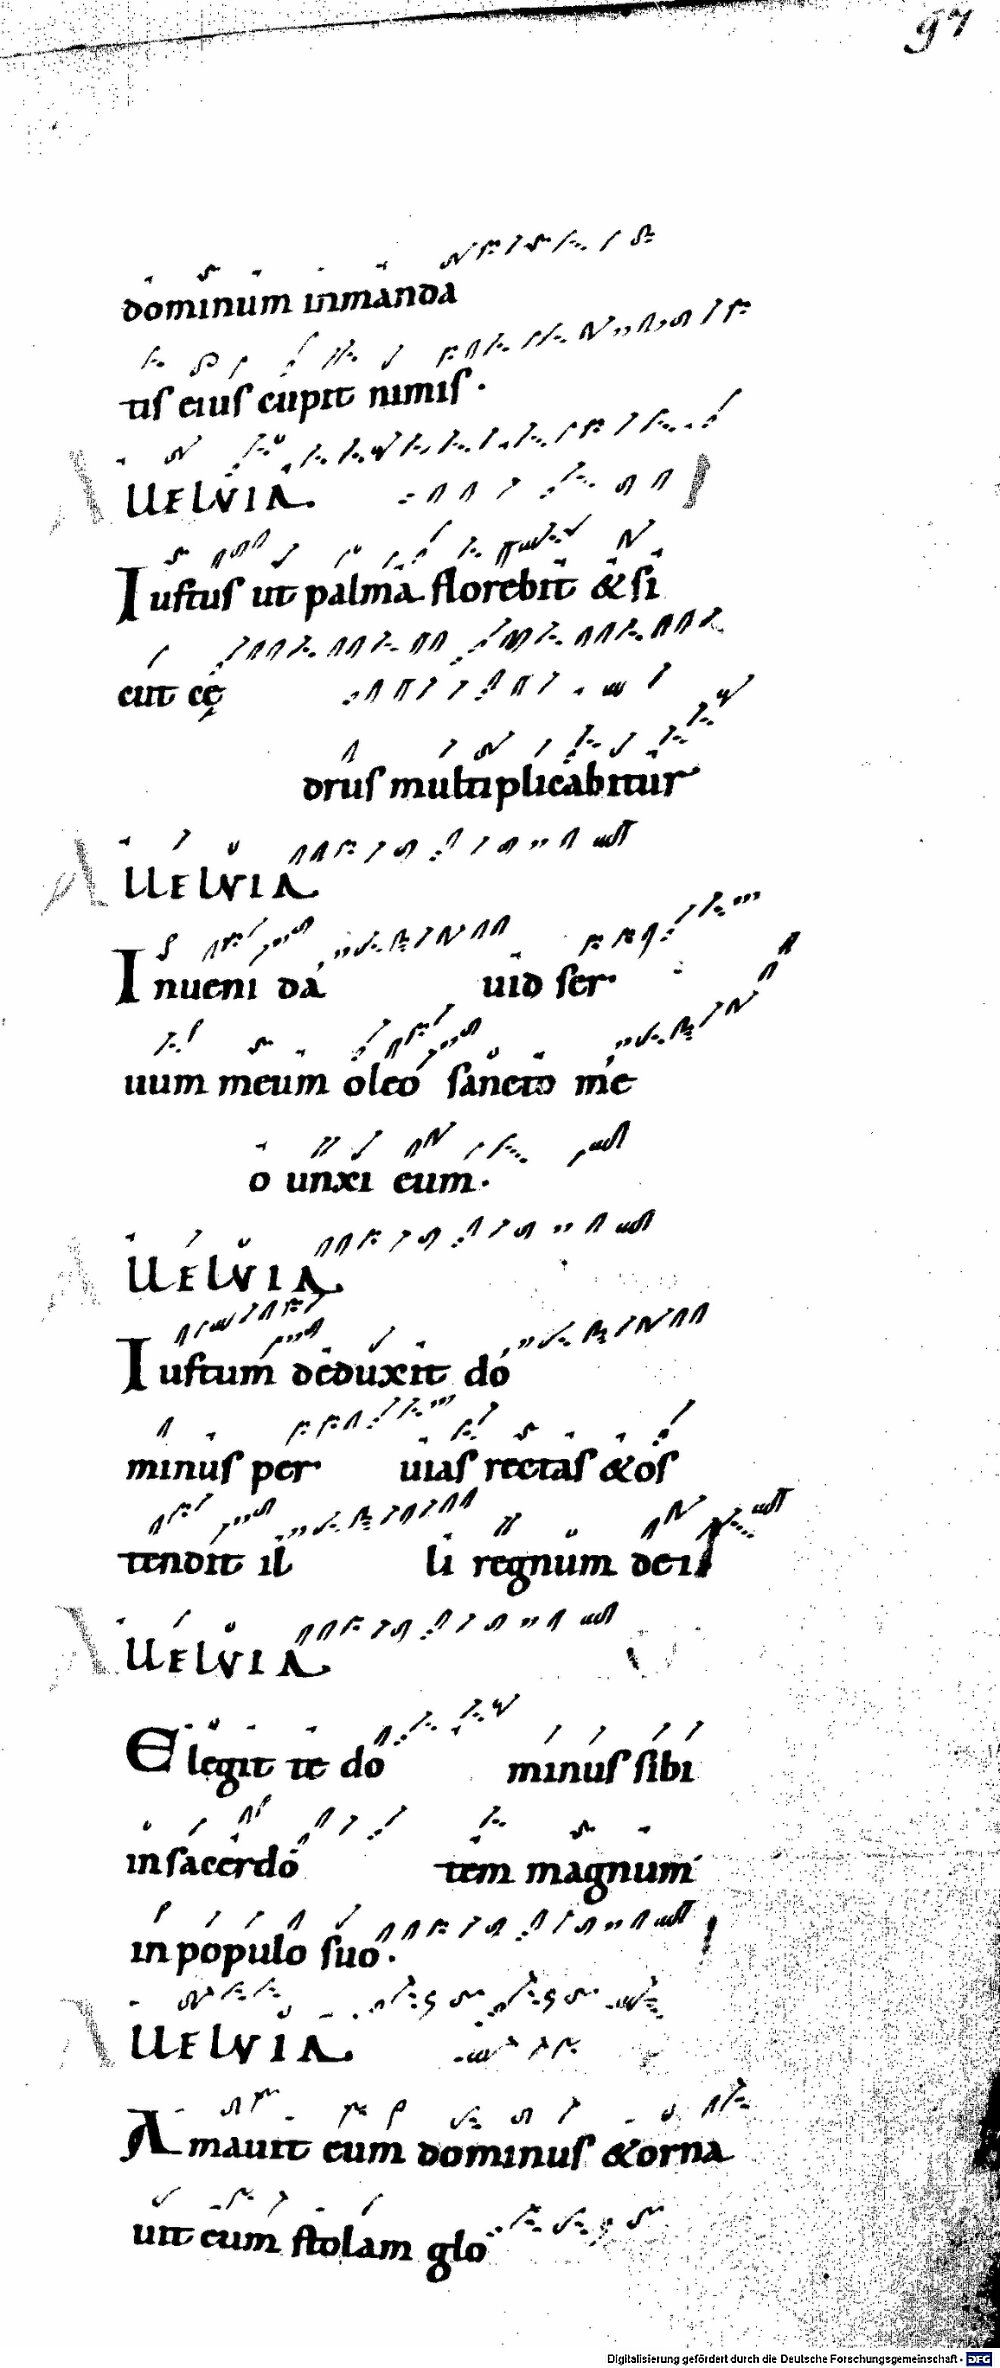 97
dominum inmanda
tis eius cupit nimis.
ALLELVIA.
Iustus ut palma florebit & si
cut cę
drus multiplicabitur
ALLELVIA
Inueni da uid ser
uum meum oleo sancto me
o unxi eum.
ALLELVIA
Iustum deduxit do
minus per uias rectas & os
tendit il li regnum dei
ALLELVIA
Elegit te do minus sibi
in sacerdo tem magnum
in populo suo.
ALLELVIA.
Amauit eum dominus & orna
uit eum stolam glo
Digitalisierung gefördert durch die Deutsche Forschungsgemeinschaft - DFG